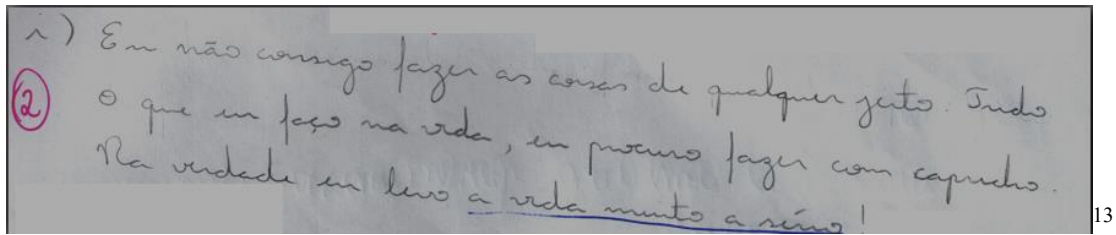 1) Eu não consigo fazer as coisas de qualquer jeito. Tudo
(2) o que eu faço na vida, eu procuro fazer com capricho.
Na verdade eu levo a vida muito a sério!
13